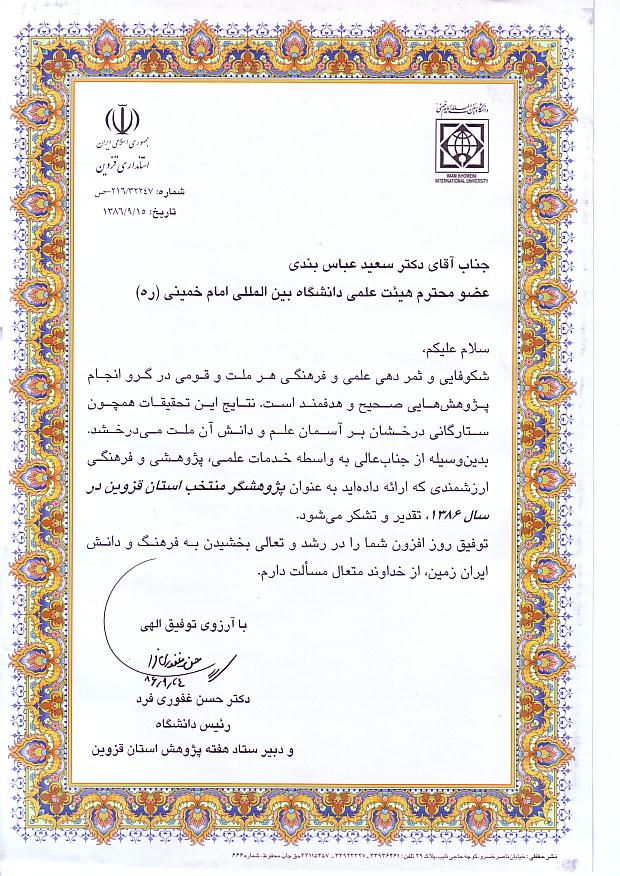 جمهوری اسلامی ایران
استانداری قزوین
شماره: ۲۱۶/۳۲۲۴۷-ص
تاریخ: ۱۳۸۶/۹/۱۵
دانشگاه بین المللی امام خمینی
IMAM KHOMEINI
INTERNATIONAL UNIVERSITY
جناب آقای دکتر سعید عباس بندی
عضو محترم هیئت علمی دانشگاه بین المللی امام خمینی (ره)
سلام علیکم،
شکوفایی و ثمر دهی علمی و فرهنگی هر ملت و قومی در گرو انجام
پژوهش‌هایی صحیح و هدفمند است. نتایج این تحقیقات همچون
ستارگانی درخشان بر آسمان علم و دانش آن ملت می‌درخشد.
بدین‌وسیله از جناب‌عالی به واسطه خدمات علمی، پژوهشی و فرهنگی
ارزشمندی که ارائه داده‌اید به عنوان پژوهشگر منتخب استان قزوین در
سال ۱۳۸۶، تقدیر و تشکر می‌شود.
توفیق روز افزون شما را در رشد و تعالی بخشیدن به فرهنگ و دانش
ایران زمین، از خداوند متعال مسألت دارم.
با آرزوی توفیق الهی
دکتر حسن غفوری فرد
رئیس دانشگاه
و دبیر ستاد هفته پژوهش استان قزوین
نشر حقفلی : خیابان ناصر خسرو، کوچه حاجی نایب، پلاک ۲۹ تلفن : ۳۳۹۳۶۳۶۱ - ۳۳۹۲۳۳۲۷ - ۳۳۱۱۵۳۵۷ حق چاپ محفوظ، شماره ۶۶۶